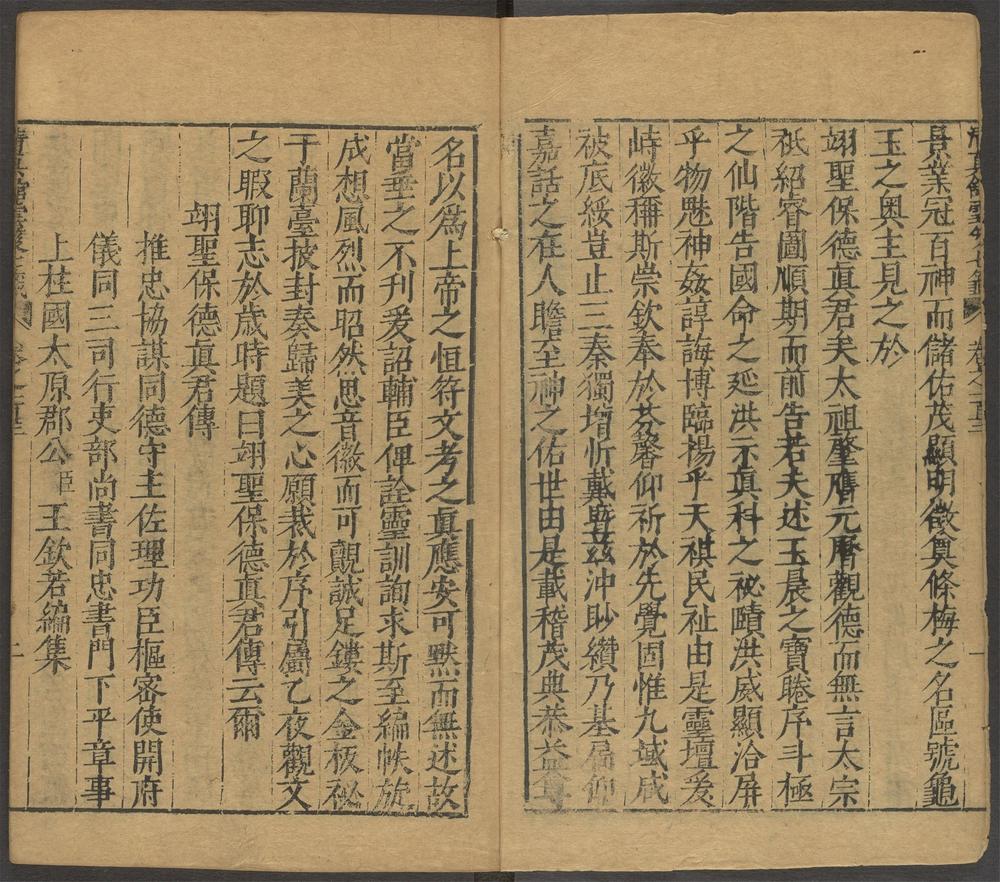 景業冠百神而儲佑茂顯明徵奠條梅之名區號龜
玉之奧主見之於
翊聖保德眞君矣太祖肇膺元曆觀德而無言太宗
祇紹睿圖順期而前告若夫述玉晨之寶睠序斗極
之仙階告國命之延洪示眞科之祕賾洪威顯洽屏
乎物魅神姦諄誨博臨揚乎天祺民祉由是靈壇爰
峙徽稱斯崇欽奉於芬馨仰祈於先覺固惟九域咸
被厎綏豈止三秦獨增忻戴無茲沖眇纘乃基扃仰
嘉話之在人瞻至神之佑世由是載稽茂典恭益尊
名以爲上帝之恒符文考之眞應安可默而無述故
當垂之不刊爰詔輔臣俾詮靈訓詢求斯至編帙旋
成想風烈而昭然思音徽而可觀誠足鏤之金板祕
于蘭臺披封奏歸美之心願裁於序引屬乙夜觀文
之暇聊志於歲時題曰翊聖保德眞君傳云爾
翊聖保德眞君傳
推忠協謀同德守主佐理功臣樞密使開府
儀同三司行吏部尚書同忠書門下平章事
上柱國太原郡公臣王欽若編集